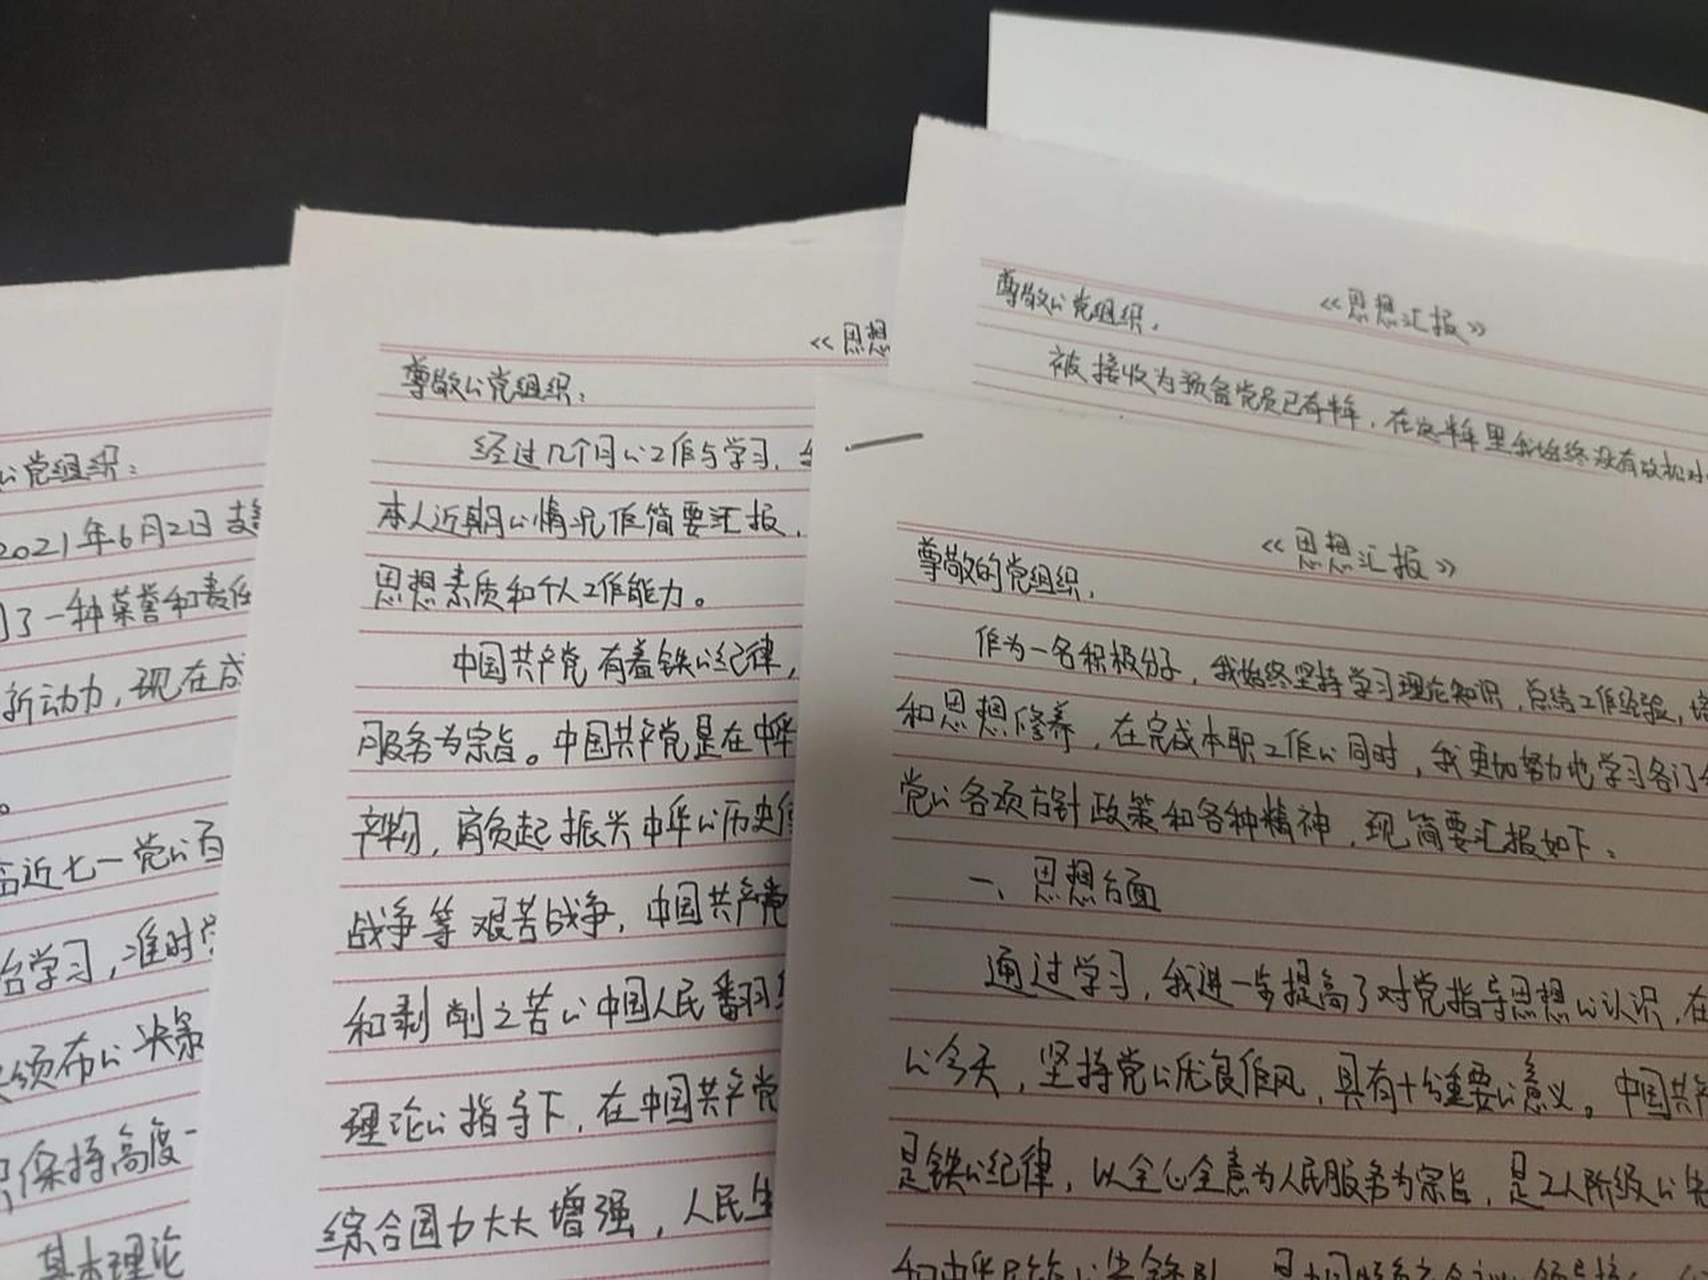 党组织：
2021年6月2日
了一种荣誉和责任
新动力，现在成
。
临近七一党的百
治学习，准时
颁布的决策
保持高度一
基本理论
《思想
尊敬的党组织：
经过几个月的工作与学习，
本人近期的情况作简要汇报，
思想素质和个人工作能力。
中国共产党有着铁的纪律，
服务为宗旨。中国共产党是在中华
产物，肩负起振兴中华的历史使
战争等艰苦战争，中国共产党
和剥削之苦的中国人民翻
理论的指导下，在中国共产党
综合国力大大增强，人民生
《思想汇报》
尊敬的党组织，
被接收为预备党员已有半年，在这半年里我始终没有放松对
《思想汇报》
尊敬的党组织，
作为一名积极分子，我始终坚持学习理论知识，总结工作经验，
和思想修养，在完成本职工作的同时，我更加努力地学习各门
党的各项方针政策和各种精神，现简要汇报如下：
一、思想方面
通过学习，我进一步提高了对党指导思想的认识，在
的今天，坚持党的优良作风，具有十分重要的意义。中国共产
是铁的纪律，以全心全意为人民服务为宗旨，是工人阶级的先
和中华民族的先锋队，是中国